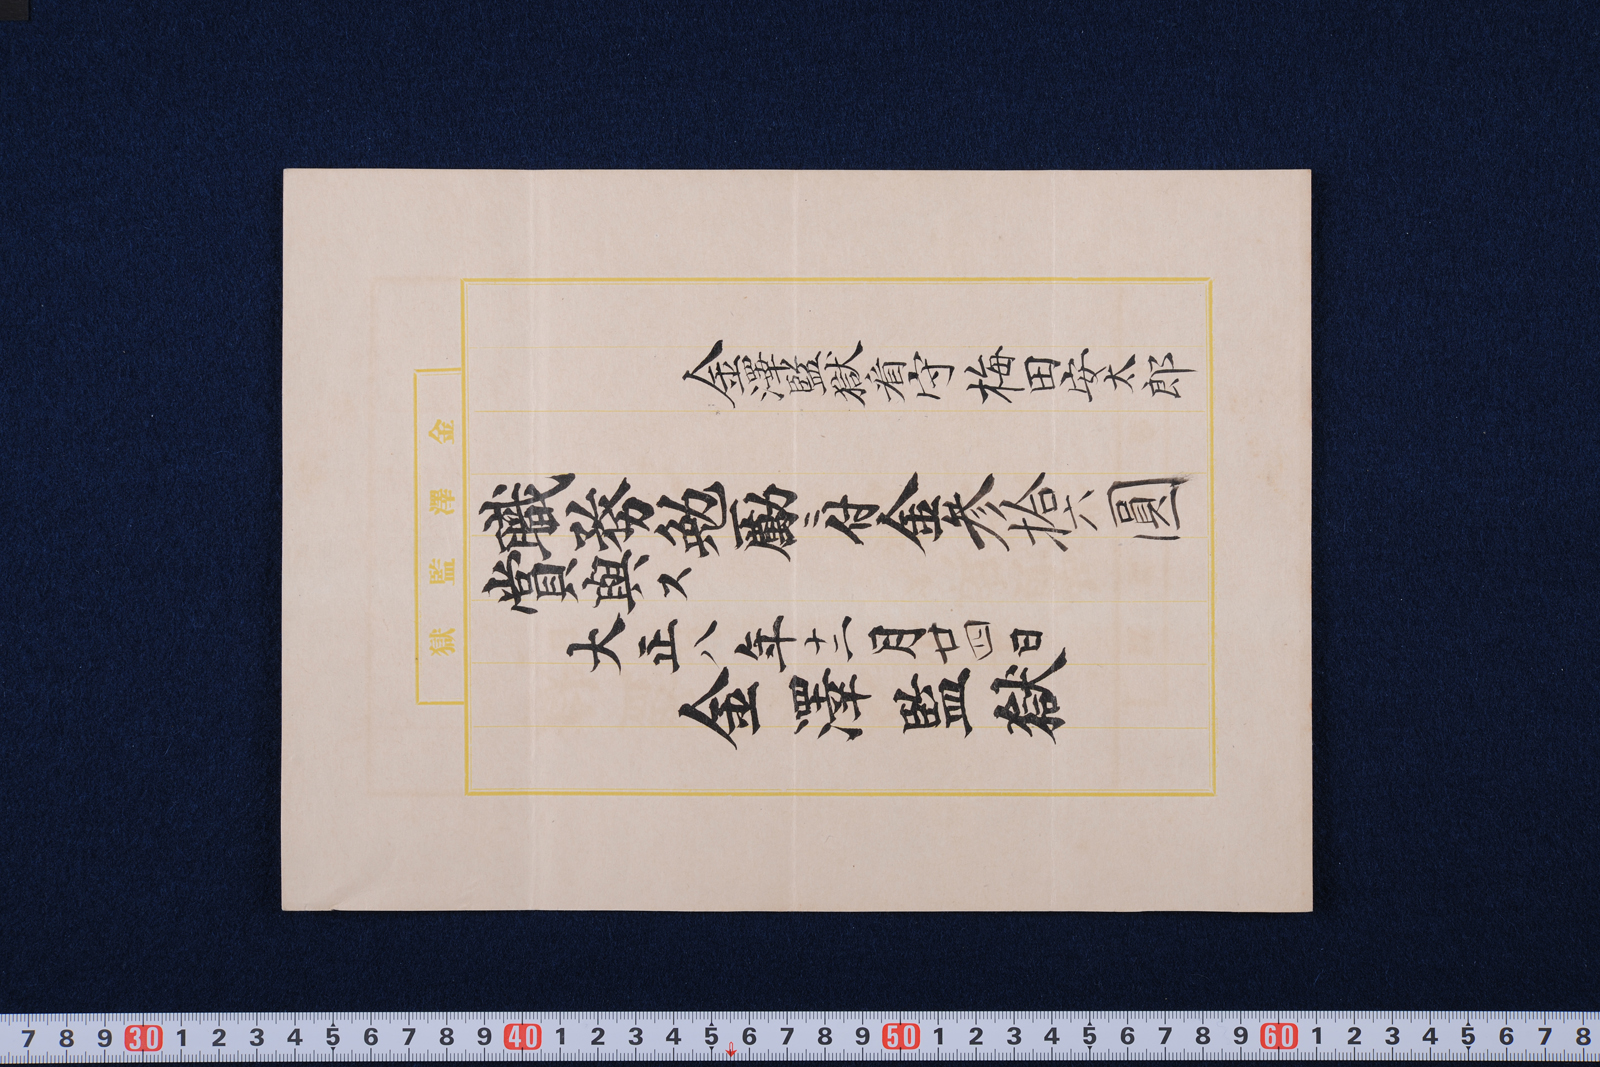 金澤監獄看守 梅田安太郎
職務勉勵ニ付金参拾六圓
賞與ス
大正八年十二月廿四日
金澤監獄
金澤監獄
7 8 9 30 1 2 3 4 5 6 7 8 9 40 1 2 3 4 5 6 7 8 9 50 1 2 3 4 5 6 7 8 9 60 1 2 3 4 5 6 7 8